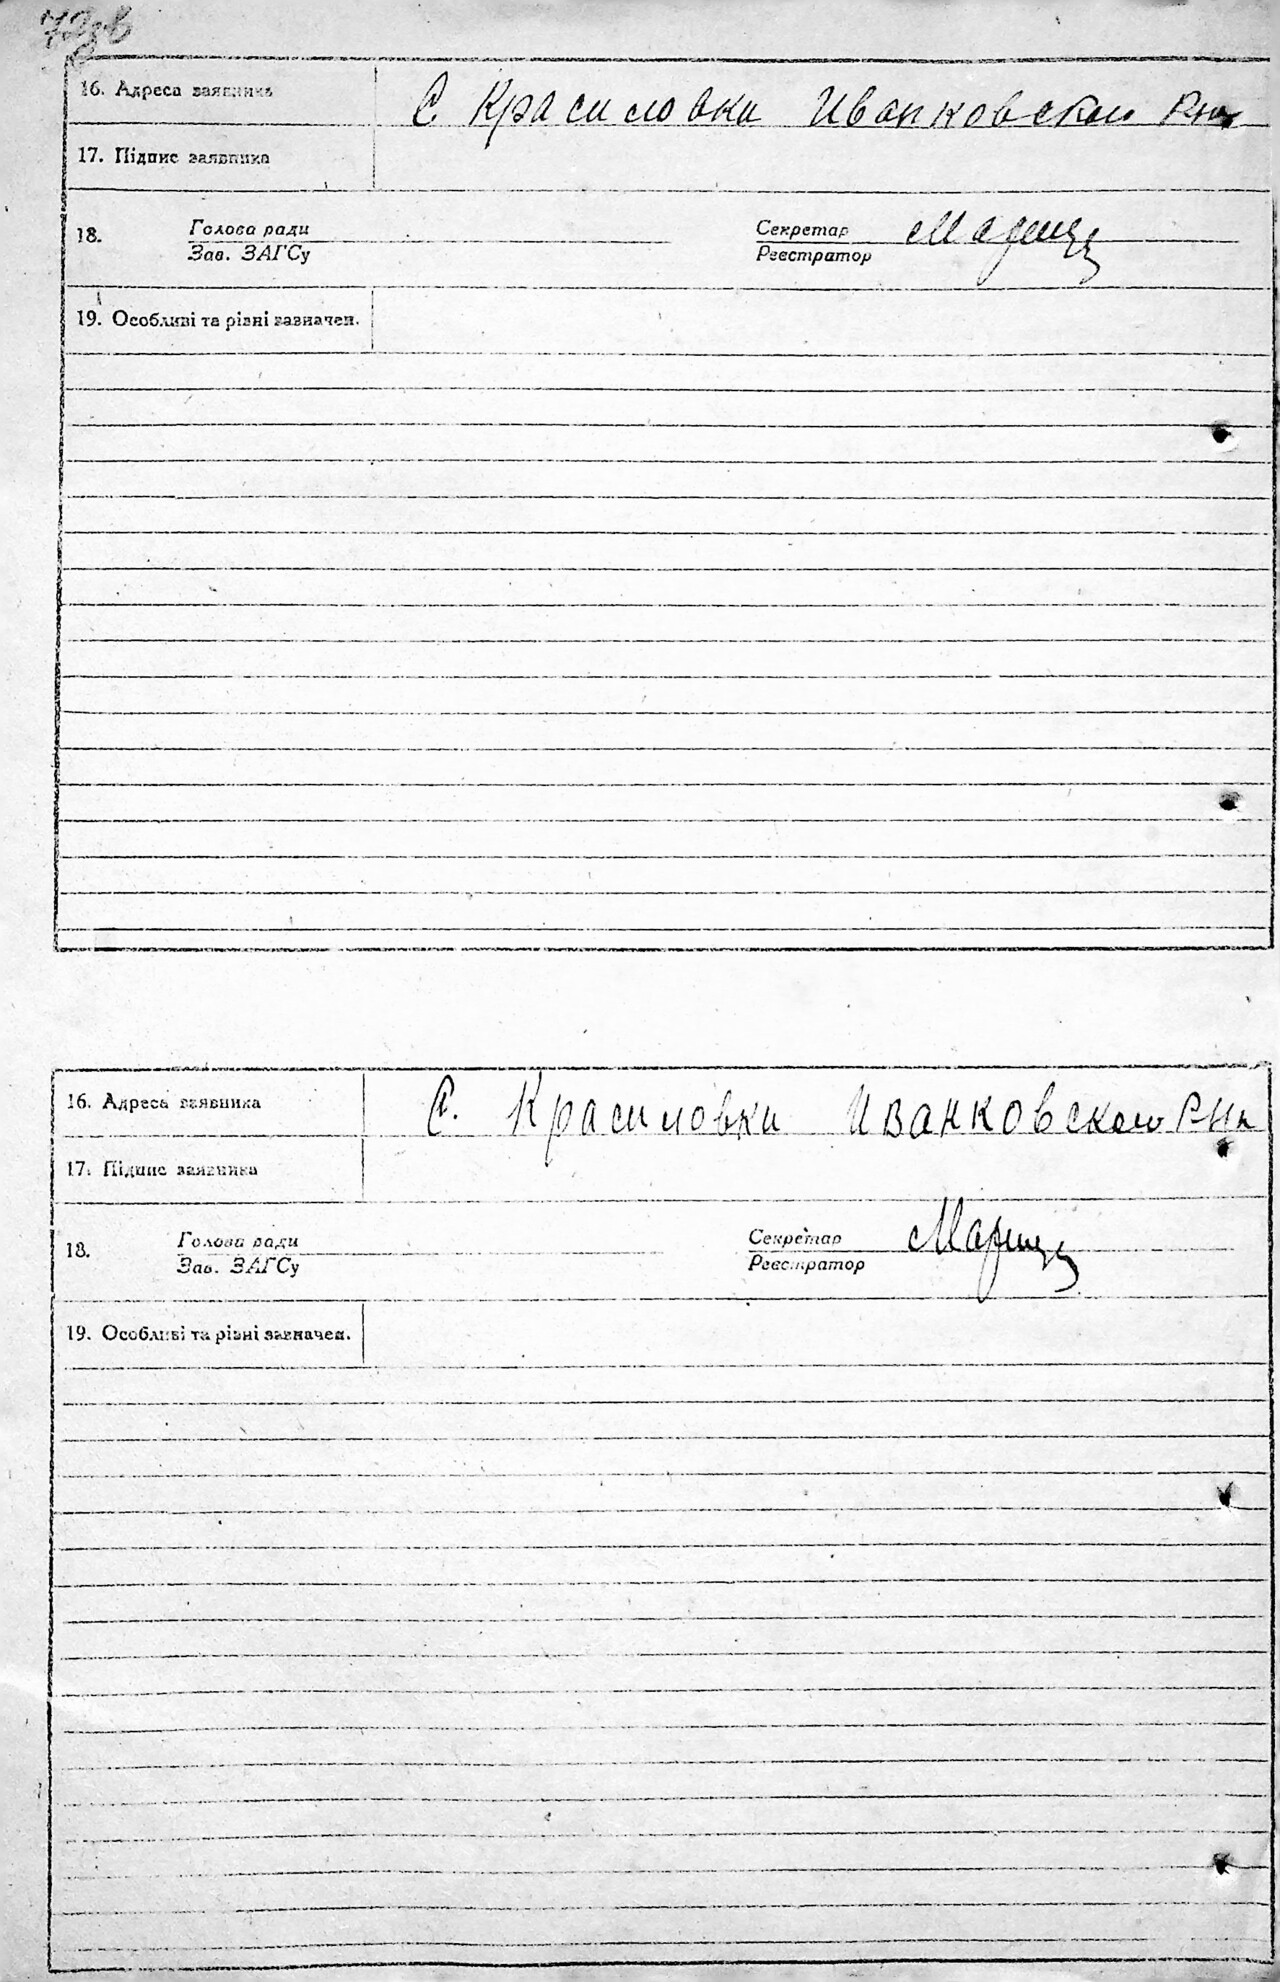 72зв
16. Адреса заявника С Красиловки Иванковского Рна
17. Підпис заявника
18. Голова ради Секретар
Зав. ЗАГСу Реєстратор
19. Особливі та різні зазначен.
16. Адреса заявника С. Красиловки Иванковского Рна
17. Підпис заявника
18. Голова ради Секретар
Зав. ЗАГСу Реєстратор
19. Особливі та різні зазначен.